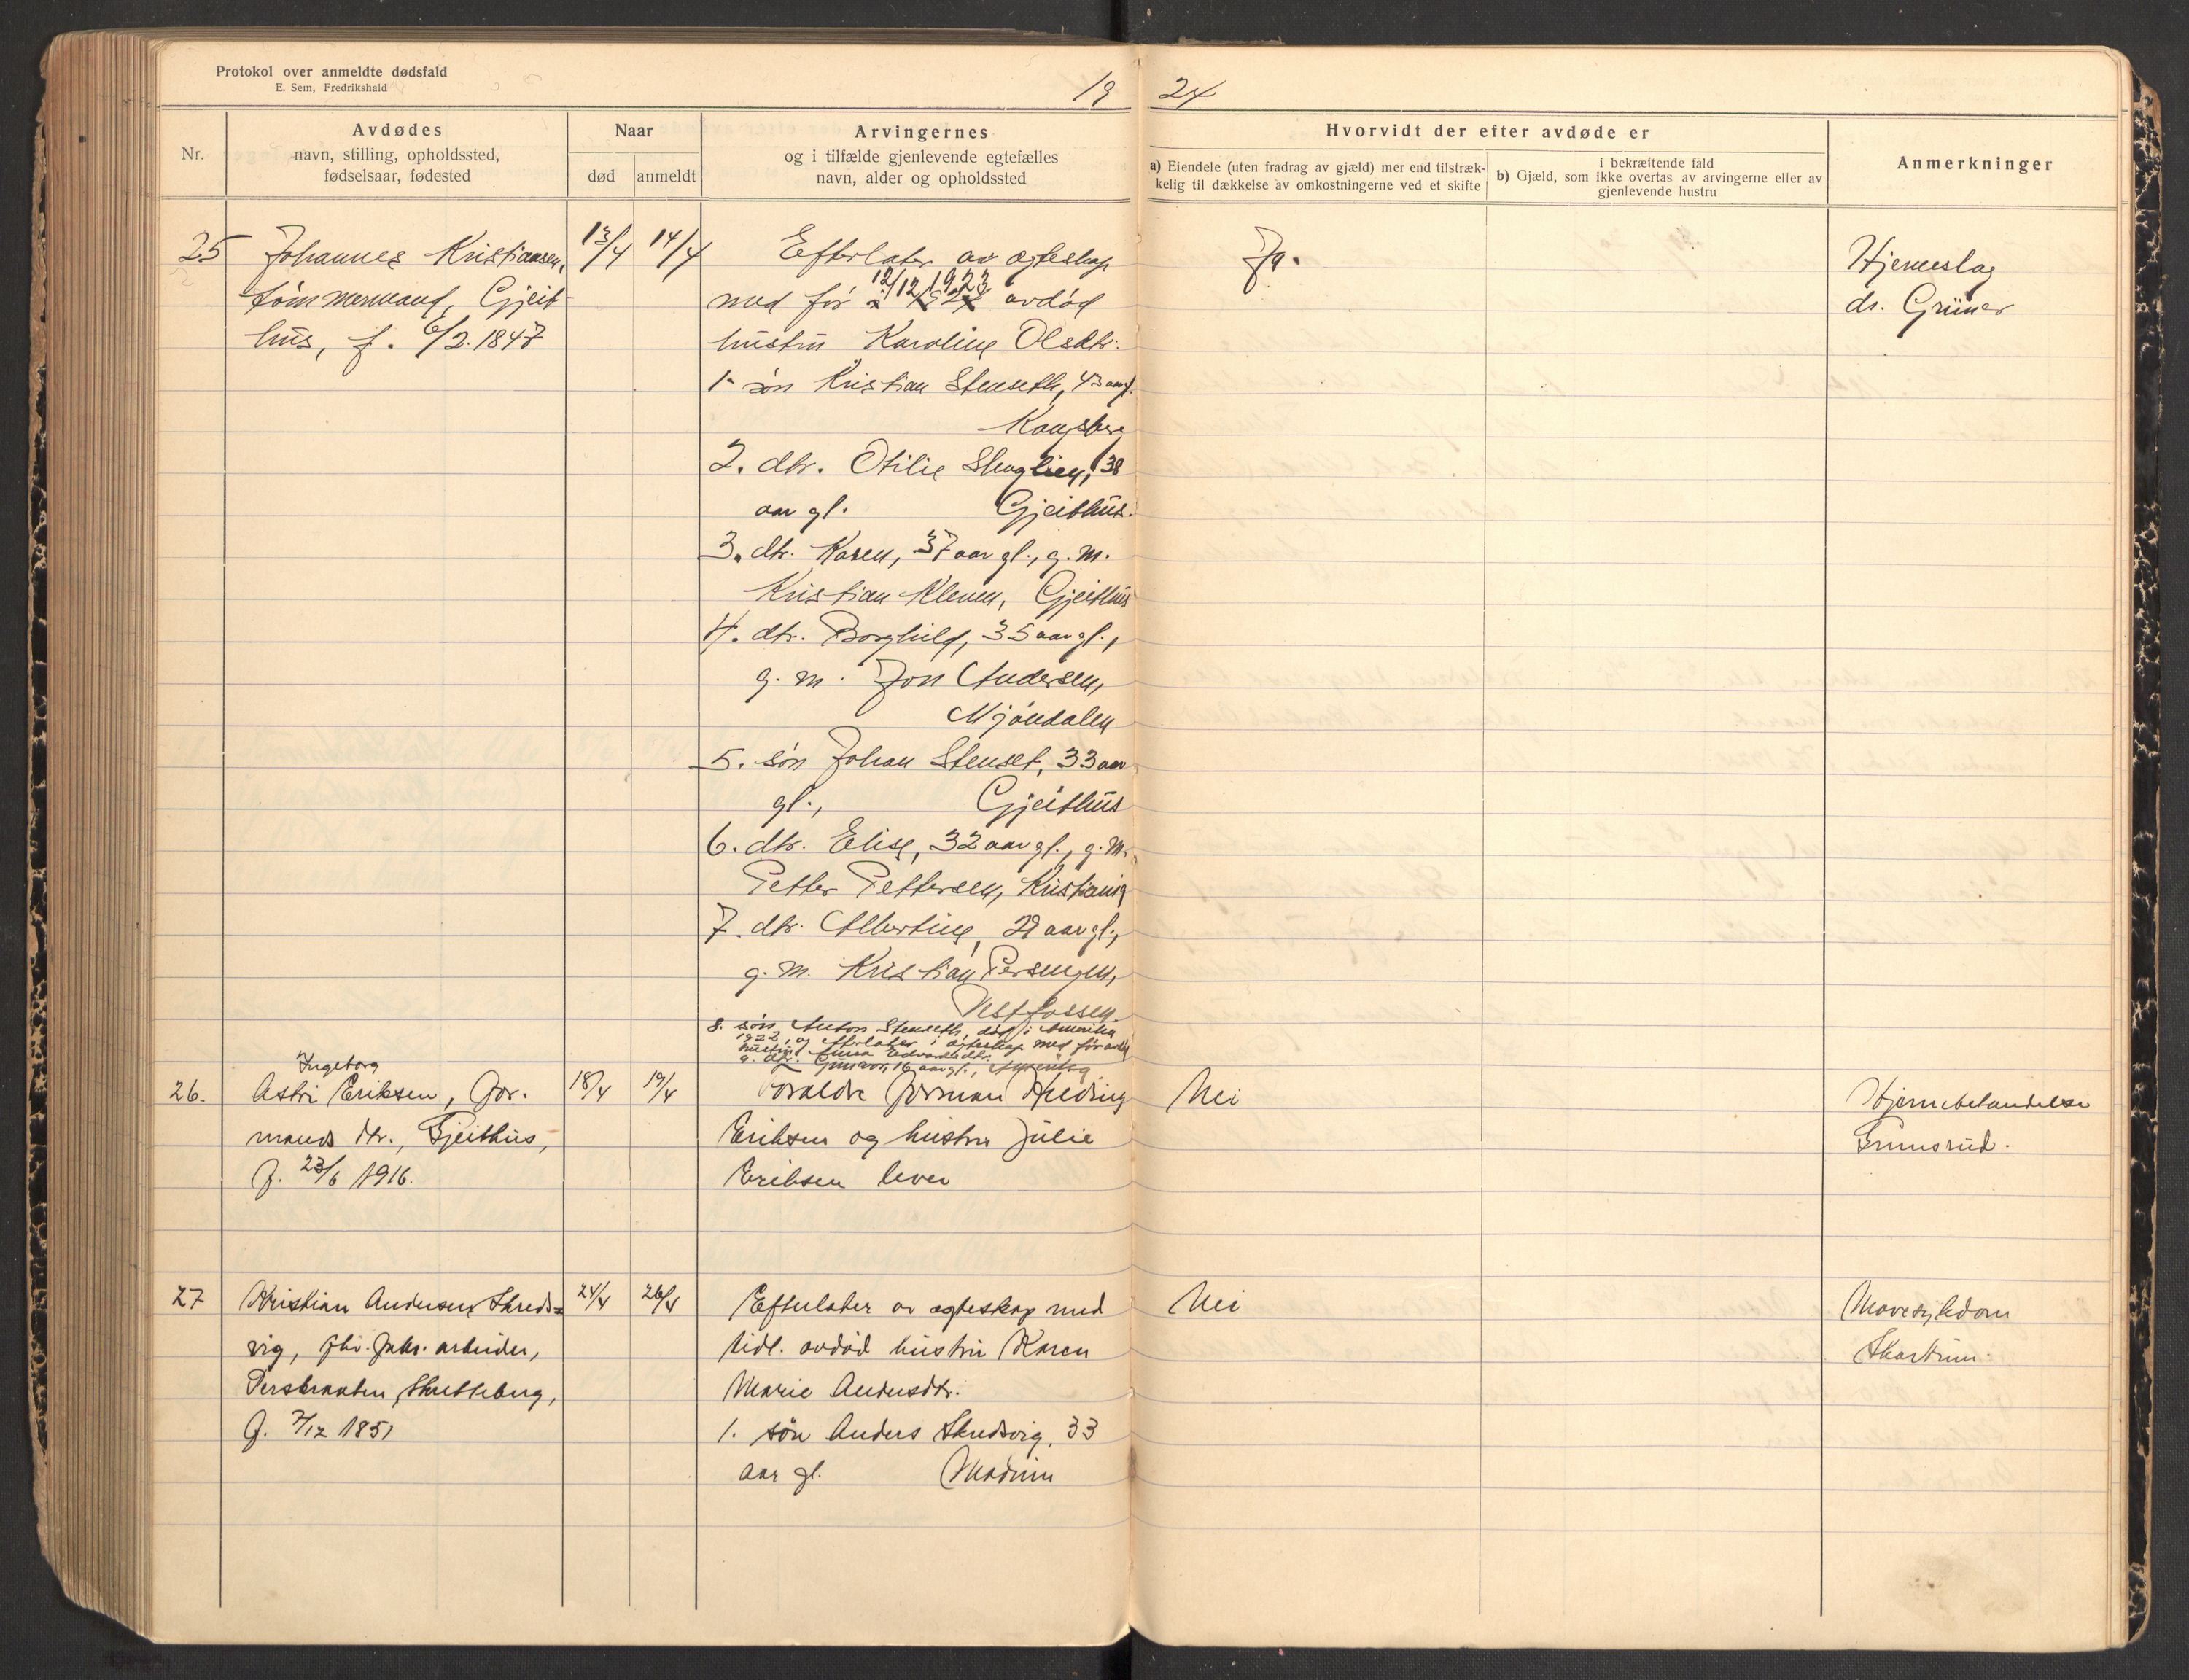 Protokol over anmeldte dødsfald
E. Sem, Fredrikshald
19 24
Nr.
Avdødes
navn, stilling, opholdssted,
fødselsaar, fødested
Naar
død
anmeldt
Arvingernes
og i tilfælde gjenlevende egtefælles
navn, alder og opholdssted
Hvorvidt der efter avdøde er
a) Eiendele (uten fradrag av gjæld) mer end tilstræk-
kelig til dækkelse av omkostningerne ved et skifte
i bekræftende fald
b) Gjæld, som ikke overtas av arvingerne eller av
gjenlevende hustru
Anmerkninger
25
Johannes Kristiansen,
tømmermand, Gjeit-
hus, f. 6/2. 1847
13/4
14/4
Efterlater av egteskap
12/12 1923
med før avdød
hustru Karoline Olsdtr.
1. søn Kristian Stenseth, 43 aar gl.
Kongsberg
2. dtr. Otilie Skoglien, 38
aar gl. Gjeithus.
3. dtr. Karen, 37 aar gl., g. m.
Kristian Kleven, Gjeithus
4. dtr. Borghild, 35 aar gl.,
g. m. Jon Andersen,
Mjøndalen
5. søn Johan Stenset, 33 aar
gl., Gjeithus
6. dtr. Elise, 32 aar gl., g. m.
Petter Pettersen, Kristiania
7. dtr. Albertine, 29 aar gl.,
g. m. Kristian Persengen,
Vestfossen.
8. søn Anton Stenseth, død i Amerika
1922, og efterlater i egteskap med før avdød
hustru Anna Edvardsdtr.
a. dtr. Gunvor, 16 aar gl., Amerika
Ja.
Hjerneslag
dr. Grüner
26.
Ingeborg
Astri Eriksen, for-
mands dtr., Gjeithus,
f. 23/6 1916.
18/4
19/4
Foraldre formand Heding
Eriksen og hustru Julie
Eriksen lever
Nei
Hjernebetandelse
Grunsrud.
27
Kristian Andersen Skreds-
vig, fhv. fabr. arbeider,
Persbraaten, Skutteberg,
f. 7/12 1851
24/4
26/4
Efterlater av egteskap med
tidl. avdød hustru Karen
Marie Andersdtr.
1. søn Anders Skredsvig, 33
aar gl. Modum
Nei
Mavesykdom
Skartum.